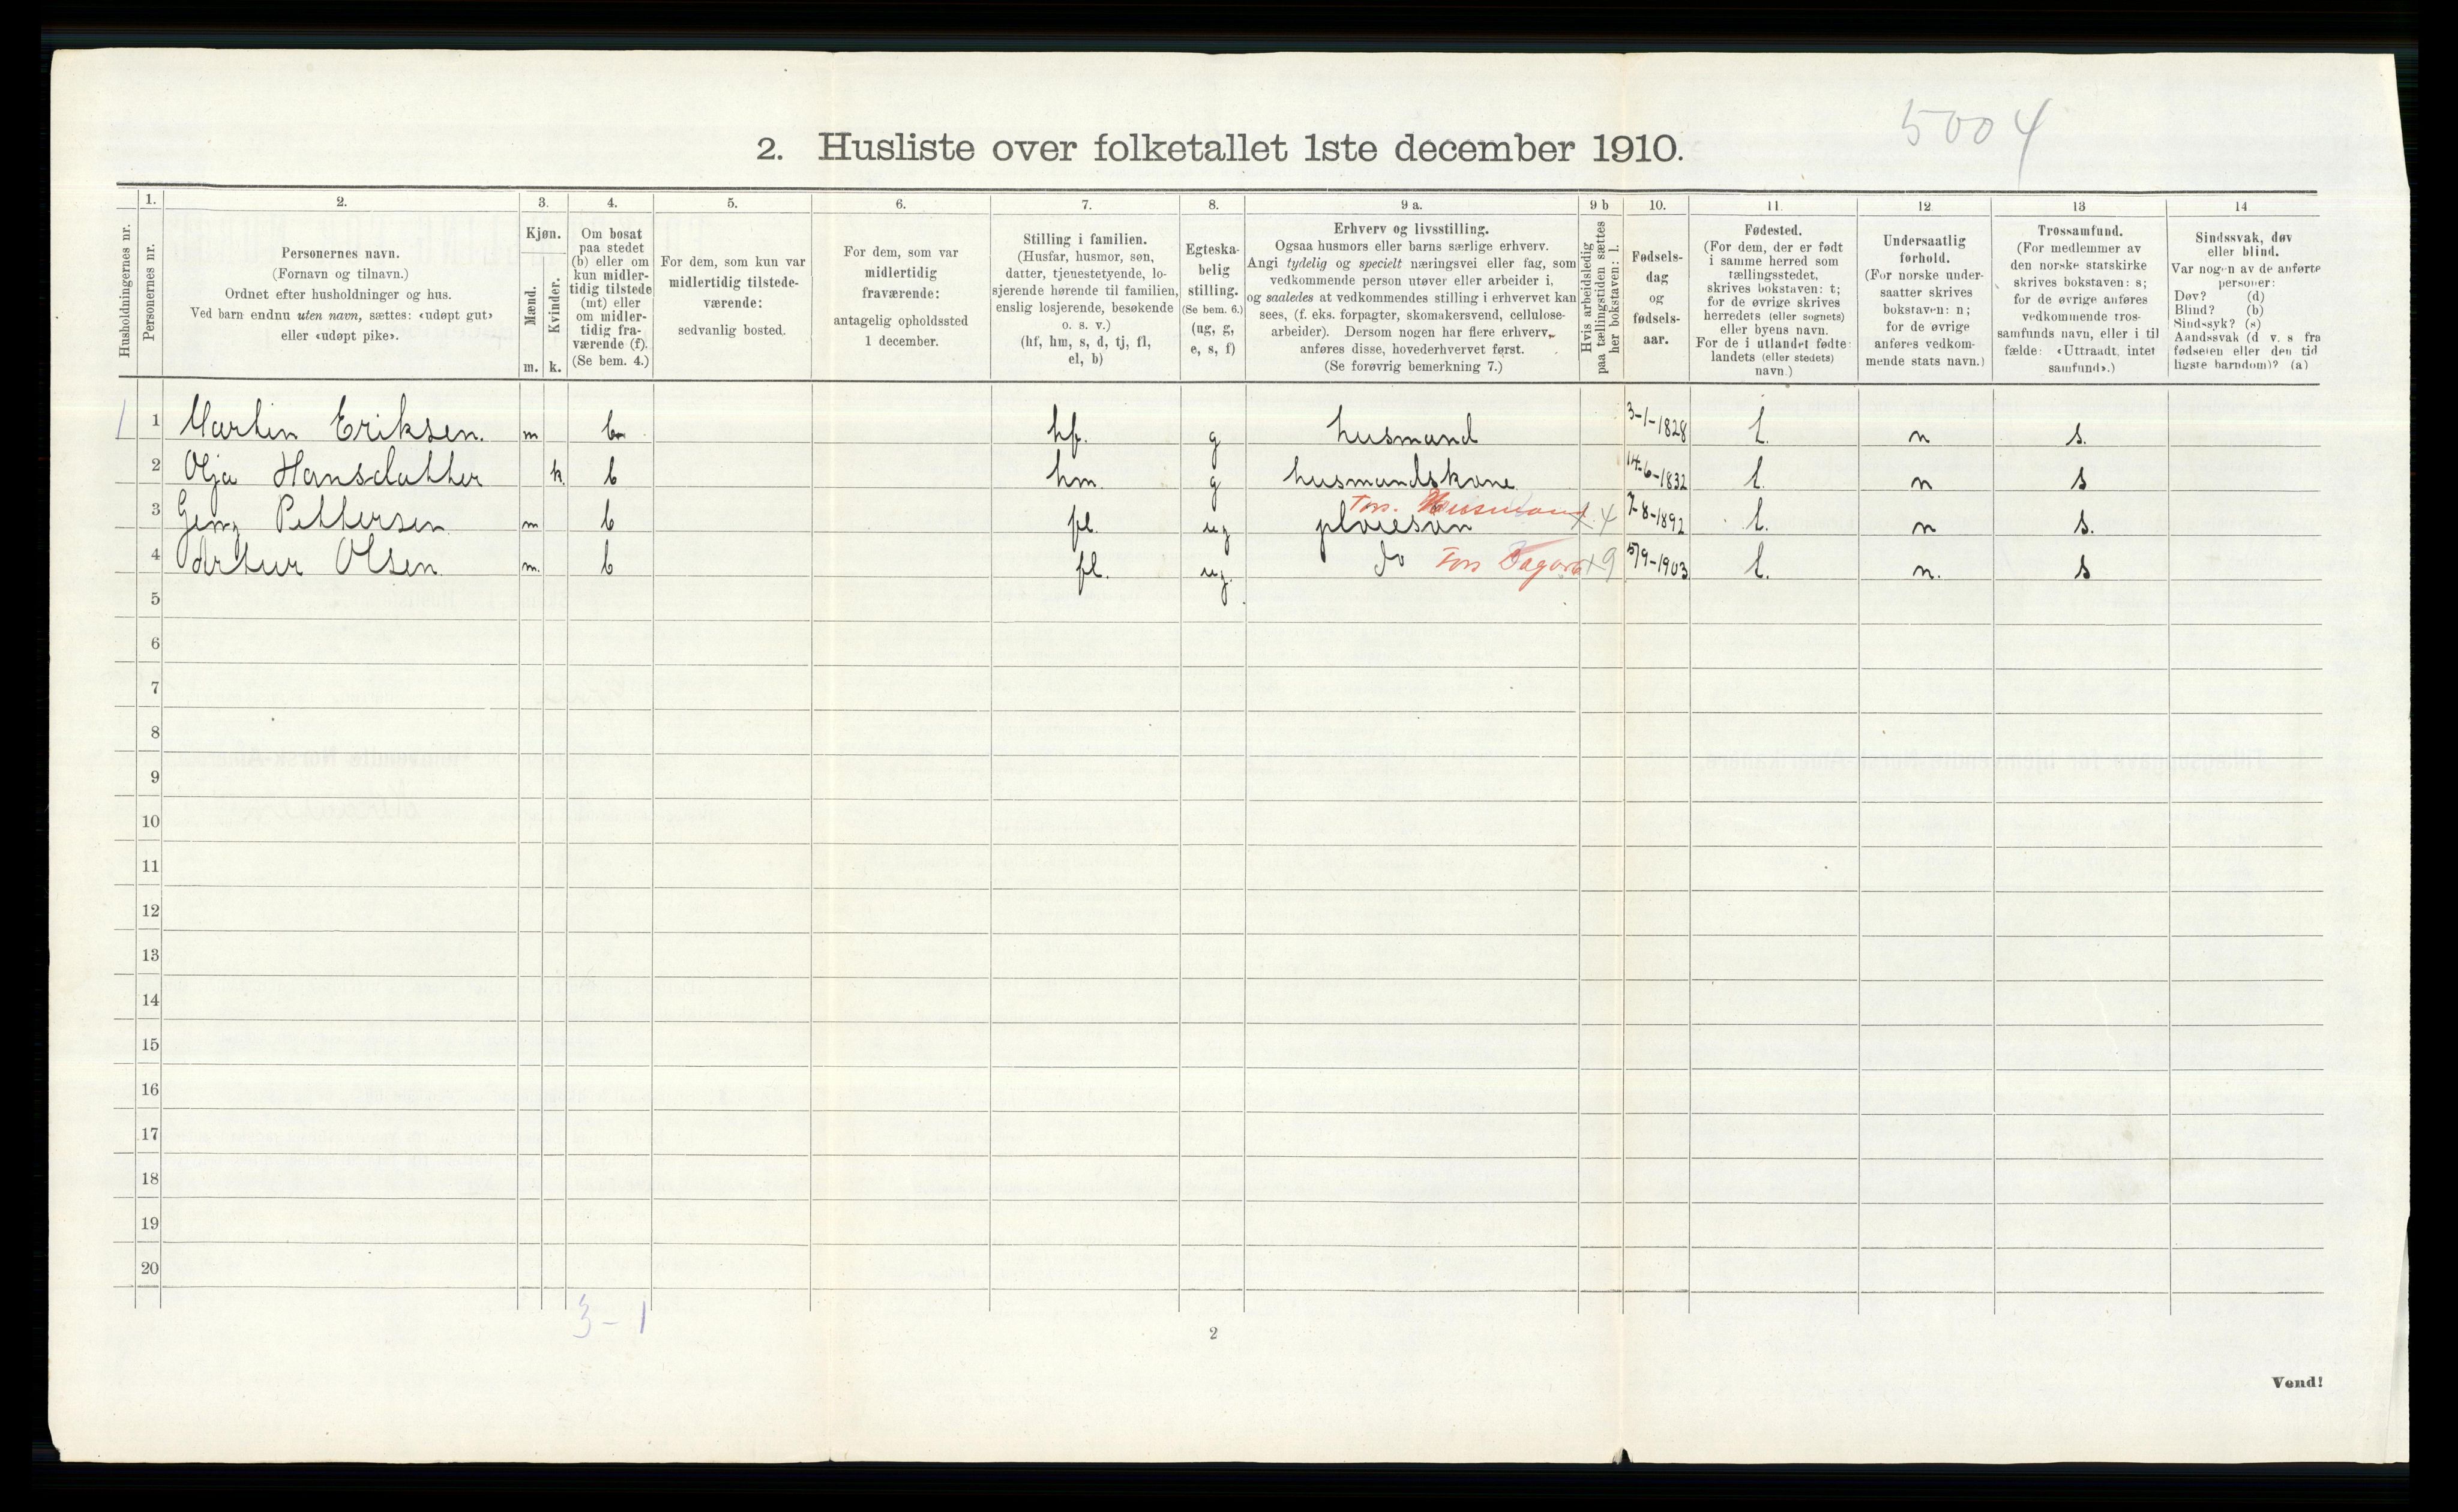 5004
2. Husliste over folketallet 1ste december 1910.
Husholdningernes nr.
1. Personernes nr.
2. Personernes navn.
(Fornavn og tilnavn.)
Ordnet efter husholdninger og hus.
Ved barn endnu uten navn, sættes: «udøpt gut»
eller «udøpt pike».
3. Kjøn.
Mænd. Kvinder.
m. k.
4. Om bosat
paa stedet
(b) eller om
kun midler-
tidig tilstede
(mt) eller
om midler-
tidig fra-
værende (f).
(Se bem. 4.)
5. For dem, som kun var
midlertidig tilstede-
værende:
sedvanlig bosted.
6. For dem, som var
midlertidig
fraværende:
antagelig opholdssted
1 december.
7. Stilling i familien.
(Husfar, husmor, søn,
datter, tjenestetyende, lo-
sjerende hørende til familien,
enslig losjerende, besøkende
o. s. v.)
(hf, hm, s, d, tj, fl,
el, b)
8. Egteska-
belig
stilling.
(Se bem. 6.)
(ug, g,
e, s, f)
9 a. Erhverv og livsstilling.
Ogsaa husmors eller barns særlige erhverv.
Angi tydelig og specielt næringsvei eller fag, som
vedkommende person utøver eller arbeider i,
og saaledes at vedkommendes stilling i erhvervet kan
sees, (f. eks. forpagter, skomakersvend, cellulose-
arbeider). Dersom nogen har flere erhverv,
anføres disse, hovederhvervet først.
(Se forøvrig bemerkning 7.)
9 b Hvis arbeidsledig
paa tællingstiden sættes
her bokstaven: l.
10. Fødsels-
dag
og
fødsels-
aar.
11. Fødested.
(For dem, der er født
i samme herred som
tællingsstedet,
skrives bokstaven: t;
for de øvrige skrives
herredets (eller sognets)
eller byens navn.
For de i utlandet fødte:
landets (eller stedets)
navn.)
12 Undersaatlig
forhold.
(For norske under-
saatter skrives
bokstaven: n;
for de øvrige
anføres vedkom-
mende stats navn.)
13 Trossamfund.
(For medlemmer av
den norske statskirke
skrives bokstaven: s;
for de øvrige anføres
vedkommende tros-
samfunds navn, eller i til
fælde: «Uttraadt, intet
samfund».)
14 Sindssvak, døv
eller blind.
Var nogen av de anførte
personer:
Døv? (d)
Blind? (b)
Sindssyk? (s)
Aandssvak (d. v. s. fra
fødselen eller den tid
ligste barndom)? (a)
1 1 Martin Eriksen. m b hf. g husmand 3-1-1828 t. n s.
2 Olja Hansdatter k. b hm. g husmandskone 14-6-1832 t. n s
Fors. Husmand
3 Petersen m b fl. ug pleiesøn x 4 7-8-1892 t. n s.
4 Artur Olsen m. b fl. ug. do Fors x9 5/9-1903 t. n. s
5
6
7
8
9
10
11
12
13
14
15
16
17
18
19
20
3 - 1
2
Vend!